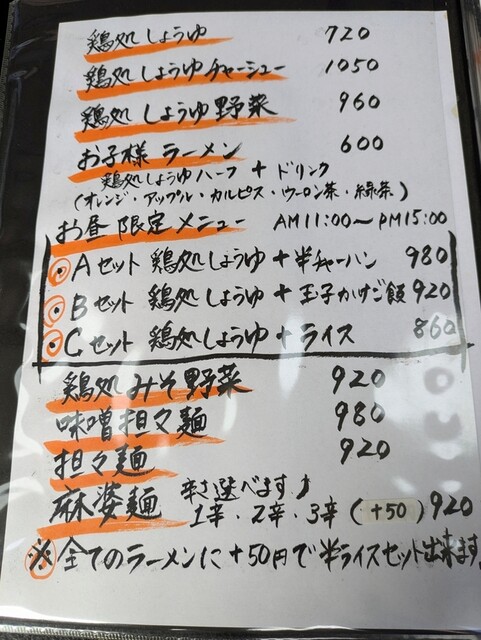 鶏処しょうゆ 720
鶏処しょうゆチャーシュー 1050
鶏処しょうゆ野菜 960
お子様ラーメン 600
鶏処しょうゆハーフ + ドリンク
(オレンジ・アップル・カルピス・ウーロン茶・緑茶)
お昼限定メニュー AM11:00〜PM15:00
・Aセット 鶏処しょうゆ+半チャーハン 980
・Bセット 鶏処しょうゆ+玉子かけご飯 920
・Cセット 鶏処しょうゆ+ライス 860
鶏処みそ野菜 920
味噌担々麺 980
担々麺 920
麻婆麺 辛さ選べます♪
1辛・2辛・3辛(+50) 920
※全てのラーメンに+50円で半ライスセット出来ます。